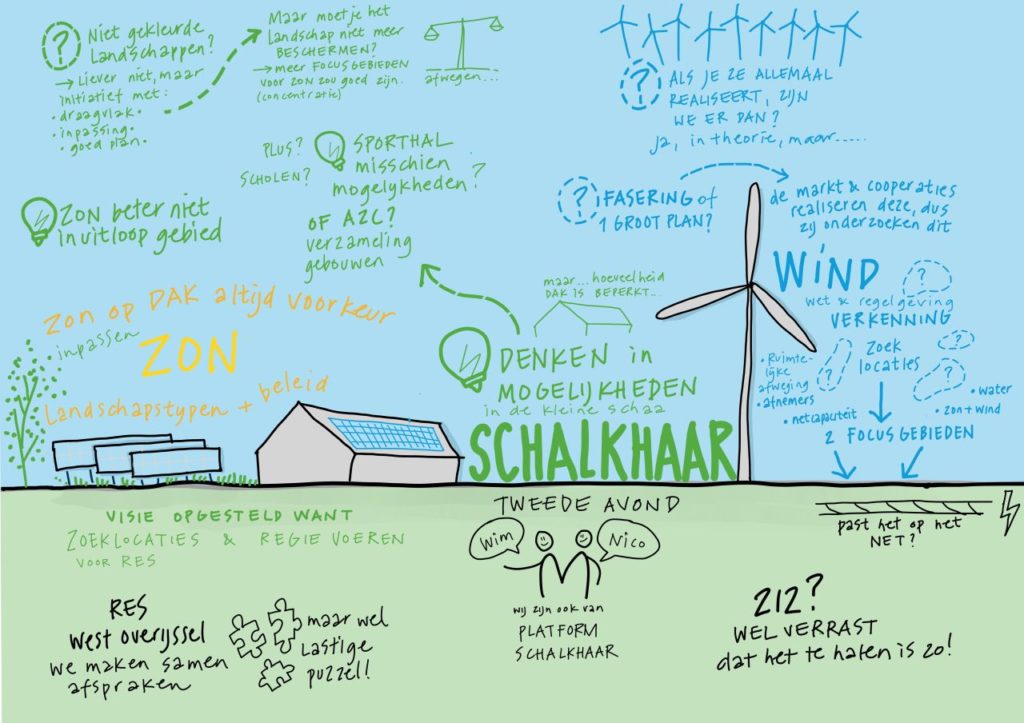 Niet gekleurde
landschappen?
→ Liever niet, maar
initiatief met:
• draagvlak •
• inpassing •
• goed plan •
Maar moet je het
Landschap niet meer
BESCHERMEN?
→ meer FOCUSGEBIEDEN
voor ZON zou goed zijn.
(concentratie)
afwegen...
? ALS JE ZE ALLEMAAL
REALISEERT, ZIJN
WE ER DAN?
ja, in theorie, maar.....
PLUS?
SCHOLEN?
SPORTHAL
misschien
mogelijkheden?
OF AZC?
verzameling
gebouwen
ZON beter niet
in uitloop gebied
? FASERING of
1 GROOT PLAN?
de markt & cooperaties
realiseren deze, dus
zij onderzoeken dit
WIND
wet & regelgeving
VERKENNING
?
Zoek
locaties
?
?
?
• Ruimte-
lijke
afweging
• afnemers
• netcapaciteit
• water
• zon + wind
2 FOCUSGEBIEDEN
maar... hoeveelheid
DAK IS BEPERKT...
Zon op DAK altijd voorkeur
inpassen
ZON
Landschapstypen + beleid
DENKEN in
MOGELIJKHEDEN
in de kleine schaa
SCHALKHAAR
VISIE OPGESTELD WANT
ZOEKLOCATIES & REGIE VOEREN
VOOR RES
TWEEDE AVOND
Wim
Nico
wij zijn ook van
PLATFORM
SCHALKHAAR
past het op het
NET?
RES
West overijssel
we maken samen
afspraken
maar wel
lastige
puzzel!
212?
WEL VERRAST
dat het te halen is zo!